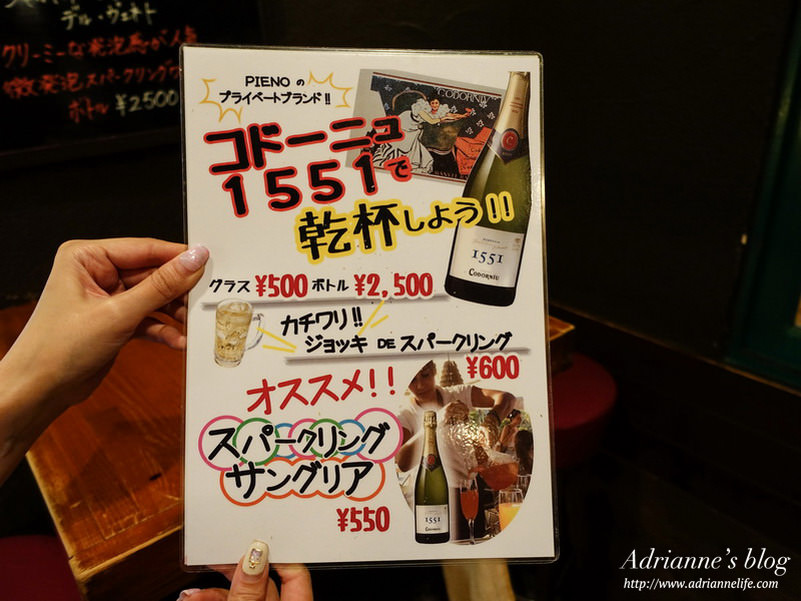 デル・ヴェネト
クリーミーな発泡感が人気
微発泡スパークリング
ボトル ¥2500
PIENO の
プライベートブランド!!
CODORNIU
コドーニュ
1551で
乾杯しよう!!
1551
CODORNIU
グラス ¥500 ボトル ¥2,500
カチワリ!!
ジョッキ DE スパークリング
¥600
オススメ!!
スパークリング
サングリア
¥550
1551
CODORNIU
Adrianne's blog
http://www.adriannelife.com/